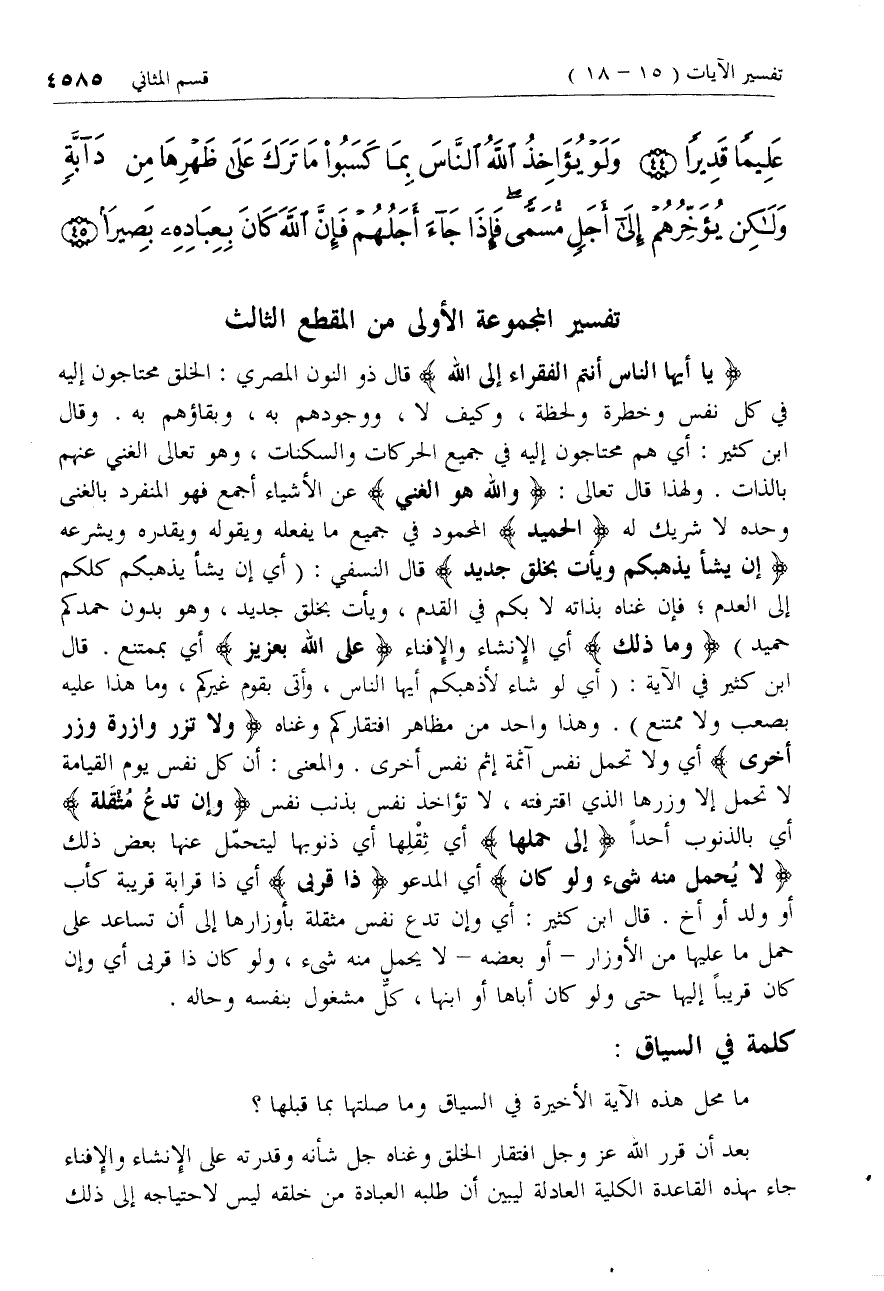 تفسير الآيات ( ١٥ – ١٨ )
قسم المثاني ٤٥٨٥
عَلِيمًا قَدِيرًا ﴿٤٤﴾ وَلَوْ يُؤَاخِذُ ٱللَّهُ ٱلنَّاسَ بِمَا كَسَبُوا۟ مَا تَرَكَ عَلَىٰ ظَهْرِهَا مِن دَآبَّةٍ
وَلَـٰكِن يُؤَخِّرُهُمْ إِلَىٰٓ أَجَلٍ مُّسَمًّى ۖ فَإِذَا جَآءَ أَجَلُهُمْ فَإِنَّ ٱللَّهَ كَانَ بِعِبَادِهِۦ بَصِيرًا ﴿٤٥﴾
تفسير المجموعة الأولى من المقطع الثالث
﴿ يا أيها الناس أنتم الفقراء إلى الله ﴾ قال ذو النون المصري : الخلق محتاجون إليه
في كل نفس وخطرة ولحظة ، وكيف لا ، ووجودهم به ، وبقاؤهم به . وقال
ابن كثير : أي هم محتاجون إليه في جميع الحركات والسكنات ، وهو تعالى الغني عنهم
بالذات . ولهذا قال تعالى : ﴿ والله هو الغني ﴾ عن الأشياء أجمع فهو المنفرد بالغنى
وحده لا شريك له ﴿ الحميد ﴾ المحمود في جميع ما يفعله ويقوله ويقدره ويشرعه
﴿ إن يشأ يذهبكم ويأت بخلق جديد ﴾ قال النسفي : ( أي إن يشأ يذهبكم كلكم
إلى العدم ؛ فإن غناه بذاته لا بكم في القدم ، ويأت بخلق جديد ، وهو بدون حمدكم
حميد ) ﴿ وما ذلك ﴾ أي الإنشاء والإفناء ﴿ على الله بعزيز ﴾ أي بممتنع . قال
ابن كثير في الآية : ( أي لو شاء لأذهبكم أيها الناس ، وأتى بقوم غيركم ، وما هذا عليه
بصعب ولا ممتنع ) . وهذا واحد من مظاهر افتقاركم وغناه ﴿ ولا تزر وازرة وزر
أخرى ﴾ أي ولا تحمل نفس آثمة إثم نفس أخرى . والمعنى : أن كل نفس يوم القيامة
لا تحمل إلا وزرها الذي اقترفته ، لا تؤاخذ نفس بذنب نفس ﴿ وإن تدعُ مُثْقَلة ﴾
أي بالذنوب أحداً ﴿ إلى حملها ﴾ أي ثِقْلِها أي ذنوبها ليتحمّل عنها بعض ذلك
﴿ لا يُحمل منه شيء ولو كان ﴾ أي المدعو ﴿ ذا قربى ﴾ أي ذا قرابة قريبة كأب
أو ولد أو أخ . قال ابن كثير : أي وإن تدع نفس مثقلة بأوزارها إلى أن تساعد على
حمل ما عليها من الأوزار – أو بعضه – لا يحمل منه شيء ، ولو كان ذا قربى أي وإن
كان قريباً إليها حتى ولو كان أباها أو ابنها ، كلٌّ مشغول بنفسه وحاله .
كلمة في السياق :
ما محل هذه الآية الأخيرة في السياق وما صلتها بما قبلها ؟
بعد أن قرر الله عز وجل افتقار الخلق وغناه جل شأنه وقدرته على الإنشاء والإفناء
جاء بهذه القاعدة الكلية العادلة ليبين أن طلبه العبادة من خلقه ليس لاحتياجه إلى ذلك